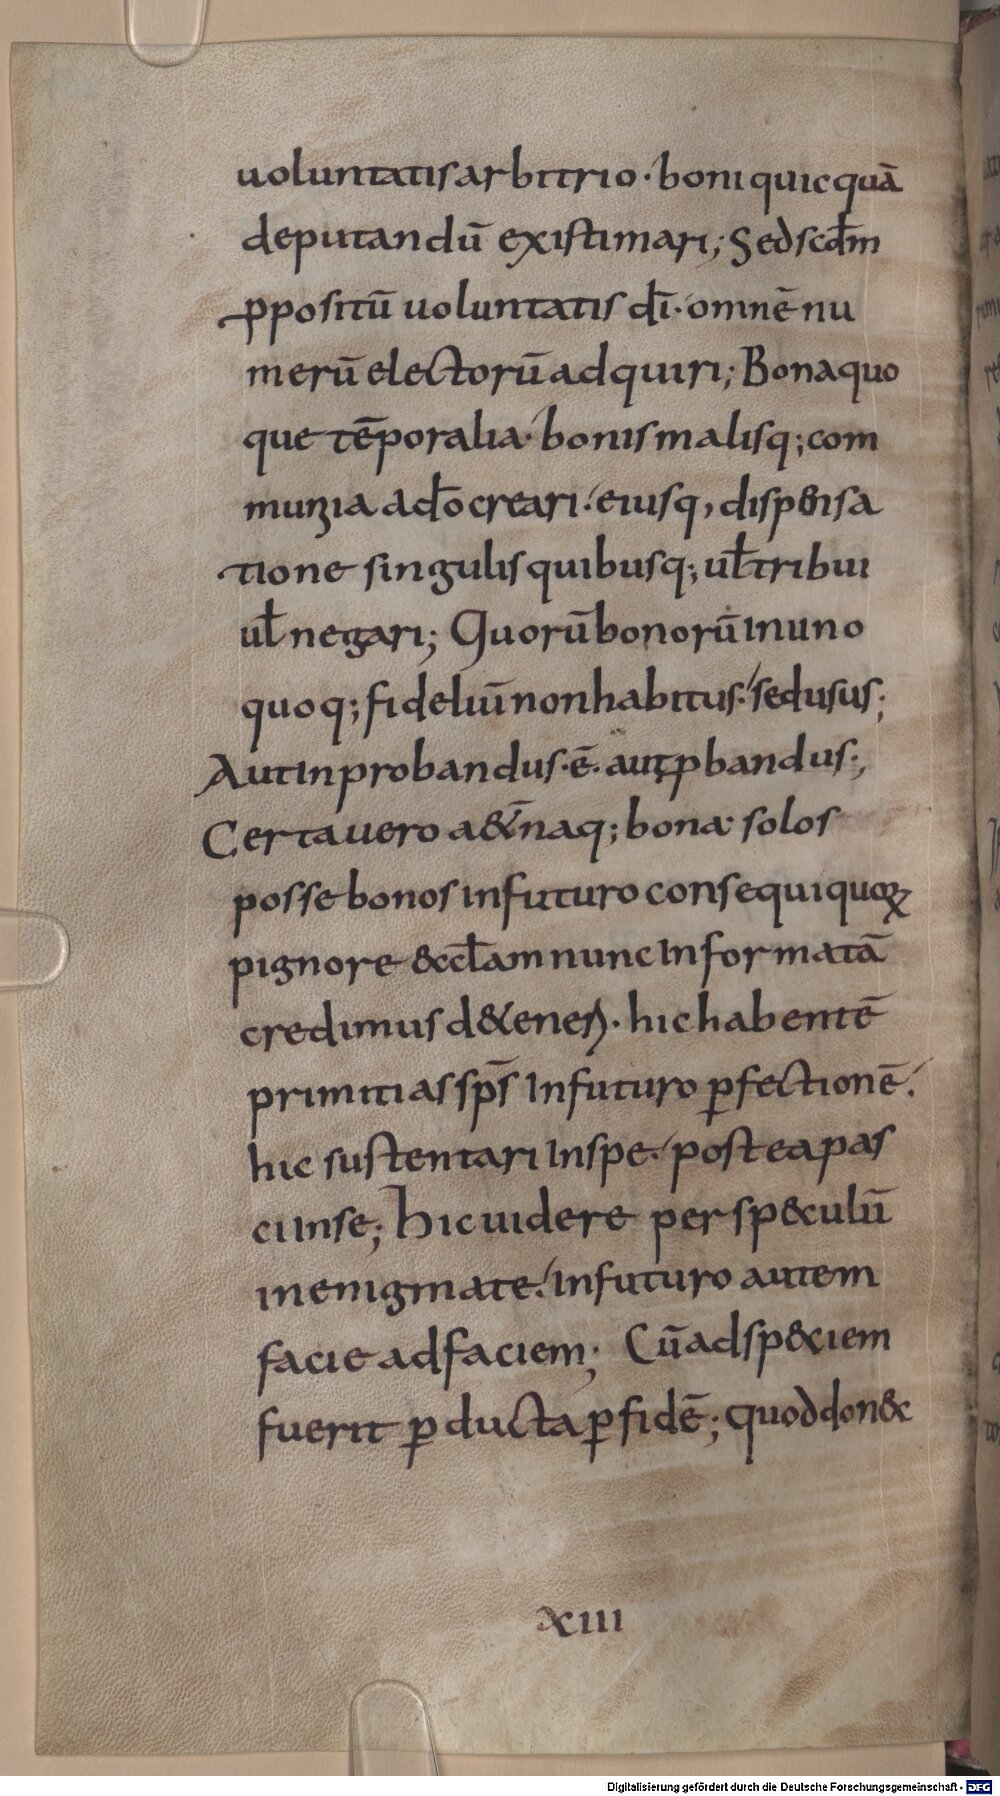 uoluntatis arbitrio· boni quicquā
deputandū existimari; Sed scd̄m
ꝓpositū uoluntatis dī· omnē nu
merū electorū adquiri; Bona quo
que tēporalia· bonis malisq; com
munia a dō creari· eiusq, dispensa
tione singulis quibusq; ul̄ tribui
ul̄ negari; Quorū bonorū in uno
quoq; fidelium̄ non habitus· sed usus;
Aut inprobandus· ē· aut ꝓbandus·,
Certa uero a&̄naq; bona· solos
posse bonos in futuro consequi quoꝝ
pignore &ccl̄am nunc Informatā
credimus d&eneri· hic habentē
primitias sp̄s In futuro ꝑfectionē·
hic sustentari In spe· postea pas
ci In se; hic uidere per sp&culū
in enigmate· in futuro autem
facie ad faciem; Cū ad sp&ciem
fuerit ꝑducta ꝑ fidē; quod don&c
xiii
Digitalisierung gefördert durch die Deutsche Forschungsgemeinschaft - DFG